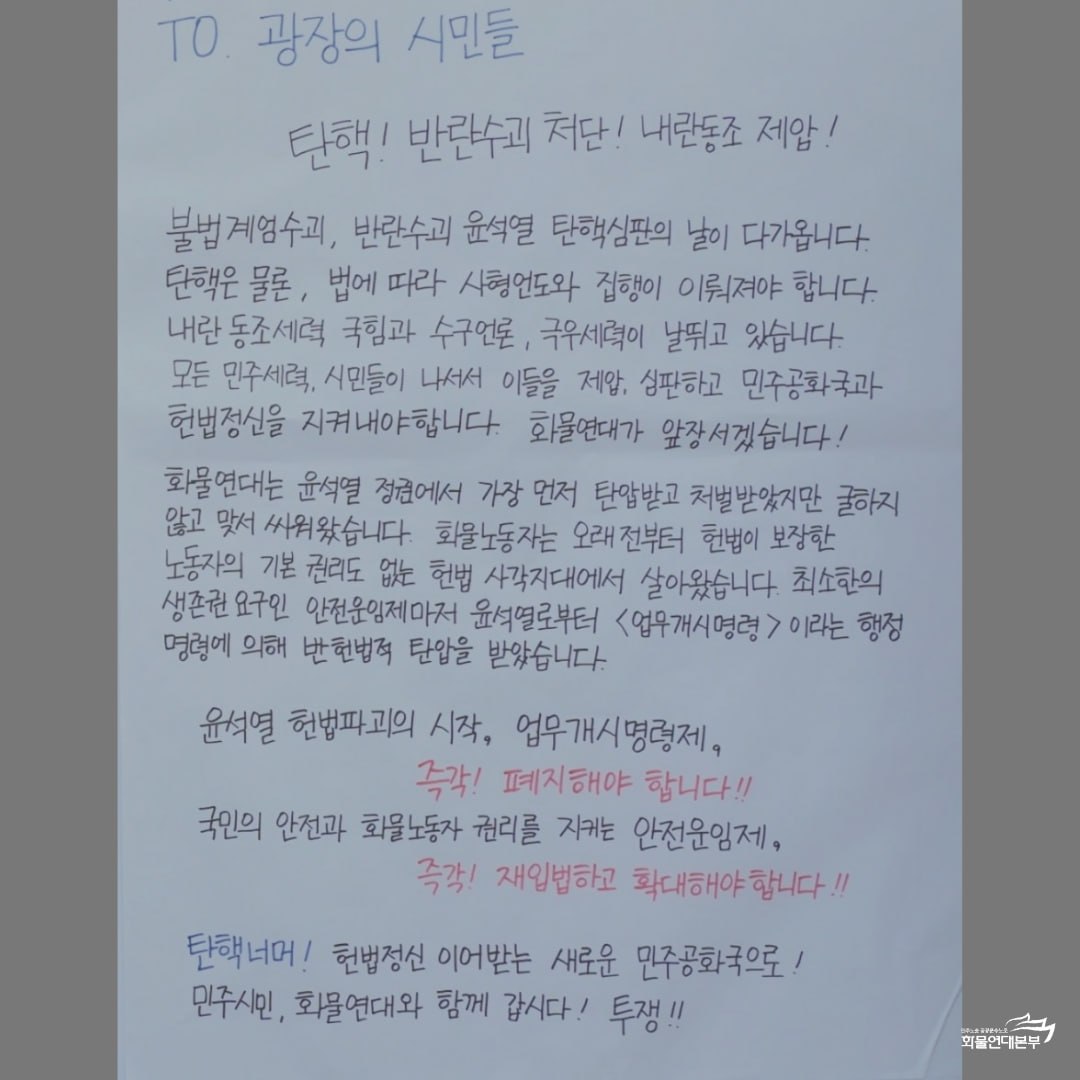 TO. 광장의 시민들
탄핵! 반란수괴 처단! 내란동조 제압!
불법계엄수괴, 반란수괴 윤석열 탄핵심판의 날이 다가옵니다.
탄핵은 물론, 법에 따라 사형언도와 집행이 이뤄져야 합니다.
내란 동조세력 국힘과 수구언론, 극우세력이 날뛰고 있습니다.
모든 민주세력, 시민들이 나서서 이들을 제압, 심판하고 민주공화국과
헌법정신을 지켜내야합니다. 화물연대가 앞장서겠습니다!
화물연대는 윤석열 정권에서 가장 먼저 탄압받고 처벌받았지만 굴하지
않고 맞서 싸워왔습니다. 화물노동자는 오래전부터 헌법이 보장한
노동자의 기본 권리도 없는 헌법 사각지대에서 살아왔습니다. 최소한의
생존권 요구인 안전운임제마저 윤석열로부터 <업무개시명령>이라는 행정
명령에 의해 반헌법적 탄압을 받았습니다.
윤석열 헌법파괴의 시작, 업무개시명령제,
즉각! 폐지해야 합니다!!
국민의 안전과 화물노동자 권리를 지키는 안전운임제,
즉각! 재입법하고 확대해야합니다!!
탄핵너머! 헌법정신 이어받는 새로운 민주공화국으로!
민주시민, 화물연대와 함께 갑시다! 투쟁!!
민주노총 공공운수노조
화물연대본부